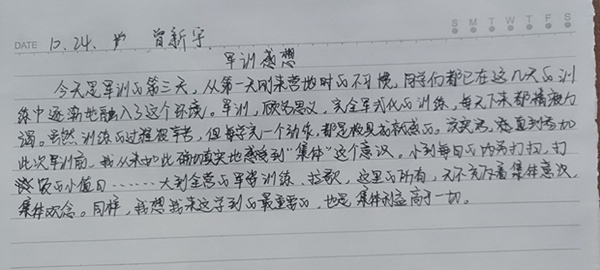 S M T W T F S
DATE 10.24. 曾新宇
军训感想
今天是军训的第三天，从第一天刚来营地时的不习惯，同学们都已在这几天的训
练中逐渐地融入了这个环境。军训，顾名思义，完全军式化的训练，每天下来都精疲力
竭。虽然训练的过程很辛苦，但每学完一个动作，都是极具成就感的。说实话，直到参加
此次军训前，我从来如此确切真实地感受到“集体”这个意识。小到每日的内务打扫，打
饭的小值日……大到全营的军营训练、拉歌，这里的所有，无不充斥着集体意识，
集体观念。同样，我想我来这学到的最重要的，也是集体利益高于一切。